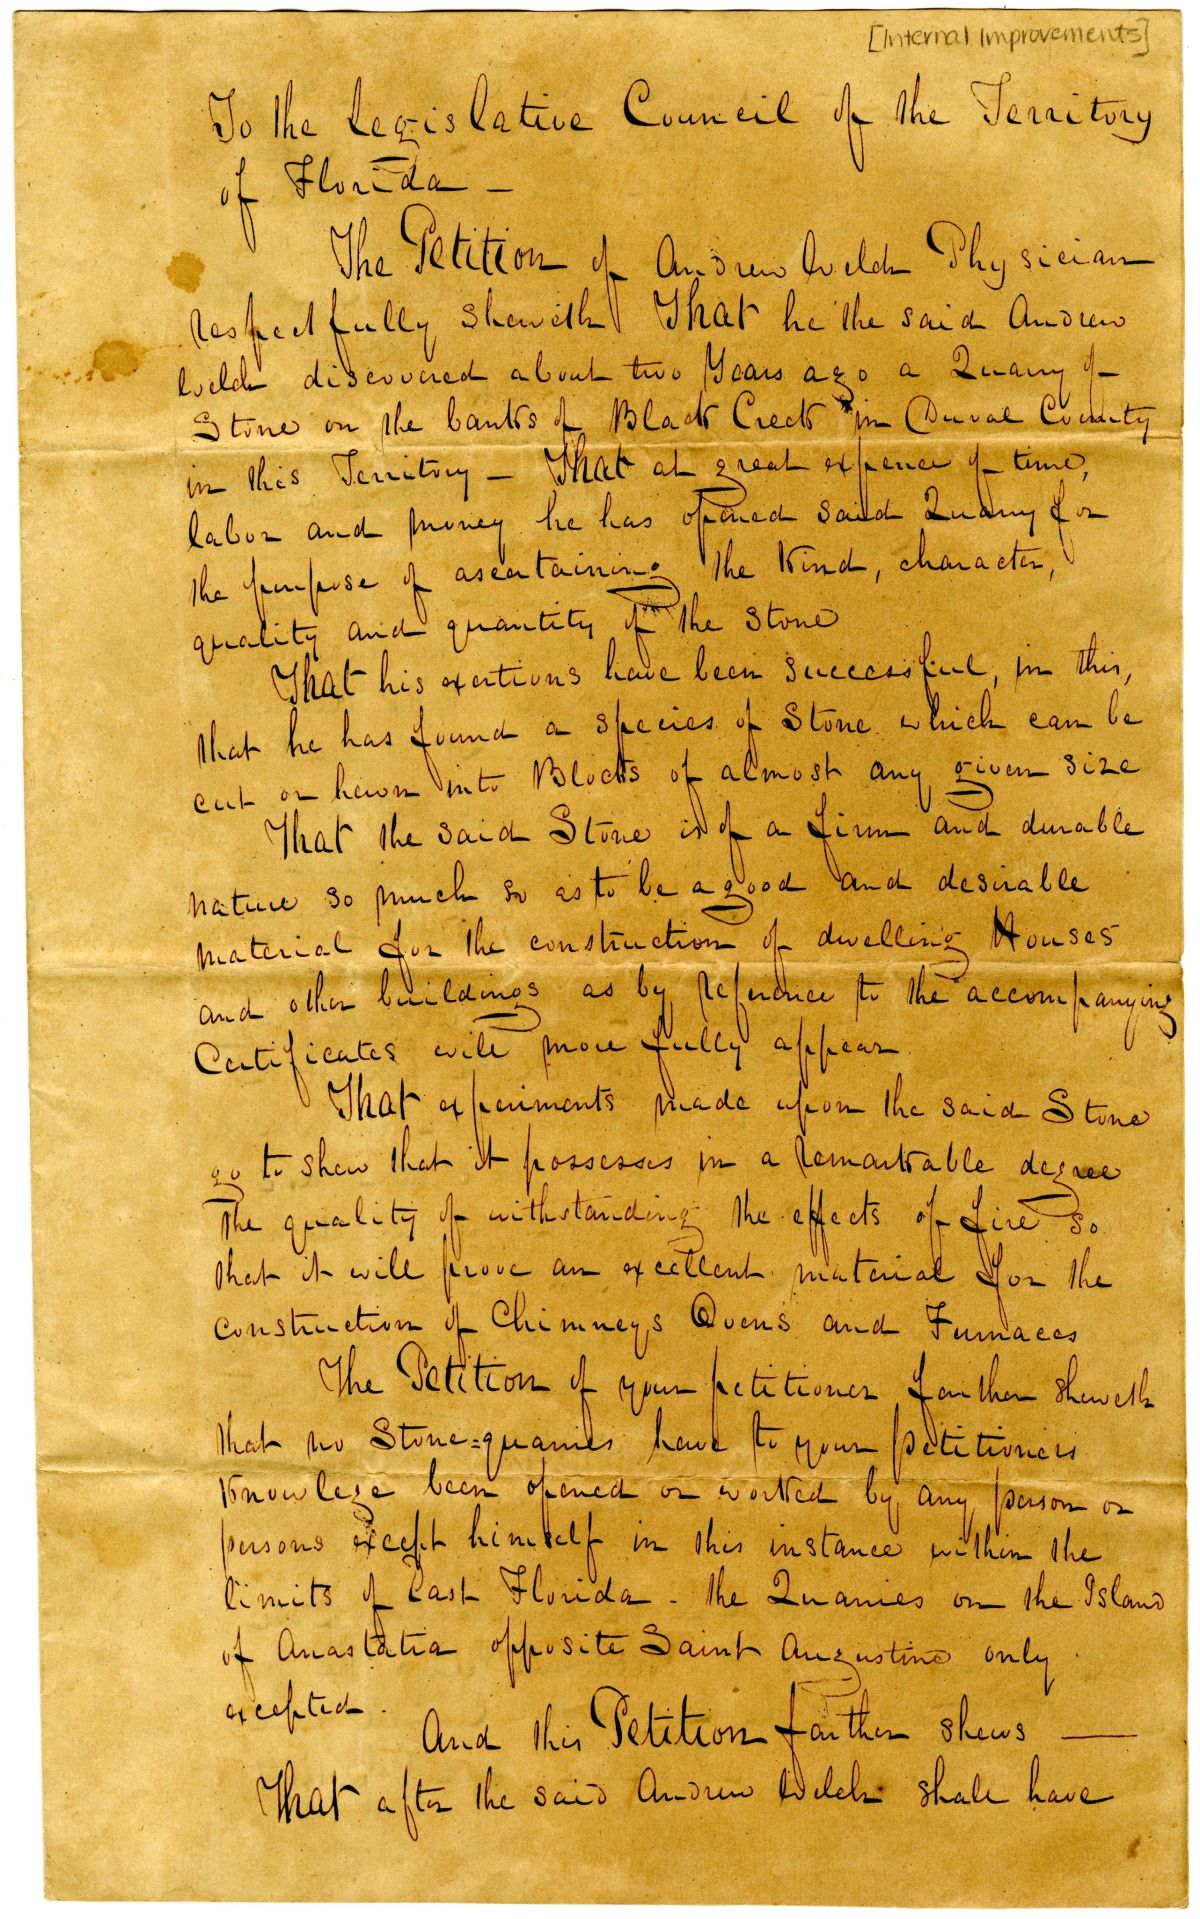 [Internal Improvements]
To the Legislative Council of the Territory
of Florida —
The Petition of Andrew Welch Physician
respectfully sheweth That he the said Andrew
Welch discovered about two Years ago a Quarry of
Stone on the banks of Black Creek in Duval County
in this Territory — That at great expence of time,
labor and money he has opened said Quarry for
the purpose of ascertaining the kind, character,
quality and quantity of the Stone
That his exertions have been successful, in this,
that he has found a species of Stone which can be
cut or hewn into Blocks of almost any given size
That the said Stone is of a firm and durable
nature so much so as to be a good and desirable
material for the construction of dwelling Houses
and other buildings as by reference to the accompanying
Certificates will more fully appear.
That experiments made upon the said Stone
go to shew that it possesses in a remarkable degree
the quality of withstanding the effects of fire so
that it will prove an excellent material for the
construction of Chimneys Ovens and Furnaces
The Petition of your petitioner farther sheweth
that no Stone=quarries have to your petitioners
knowlege been opened or worked by any person or
persons except himself in this instance within the
limits of East Florida - the Quarries on the Island
of Anastatia opposite Saint Augustine only
excepted.
And this Petition farther shews —
That after the said Andrew Welch shall have